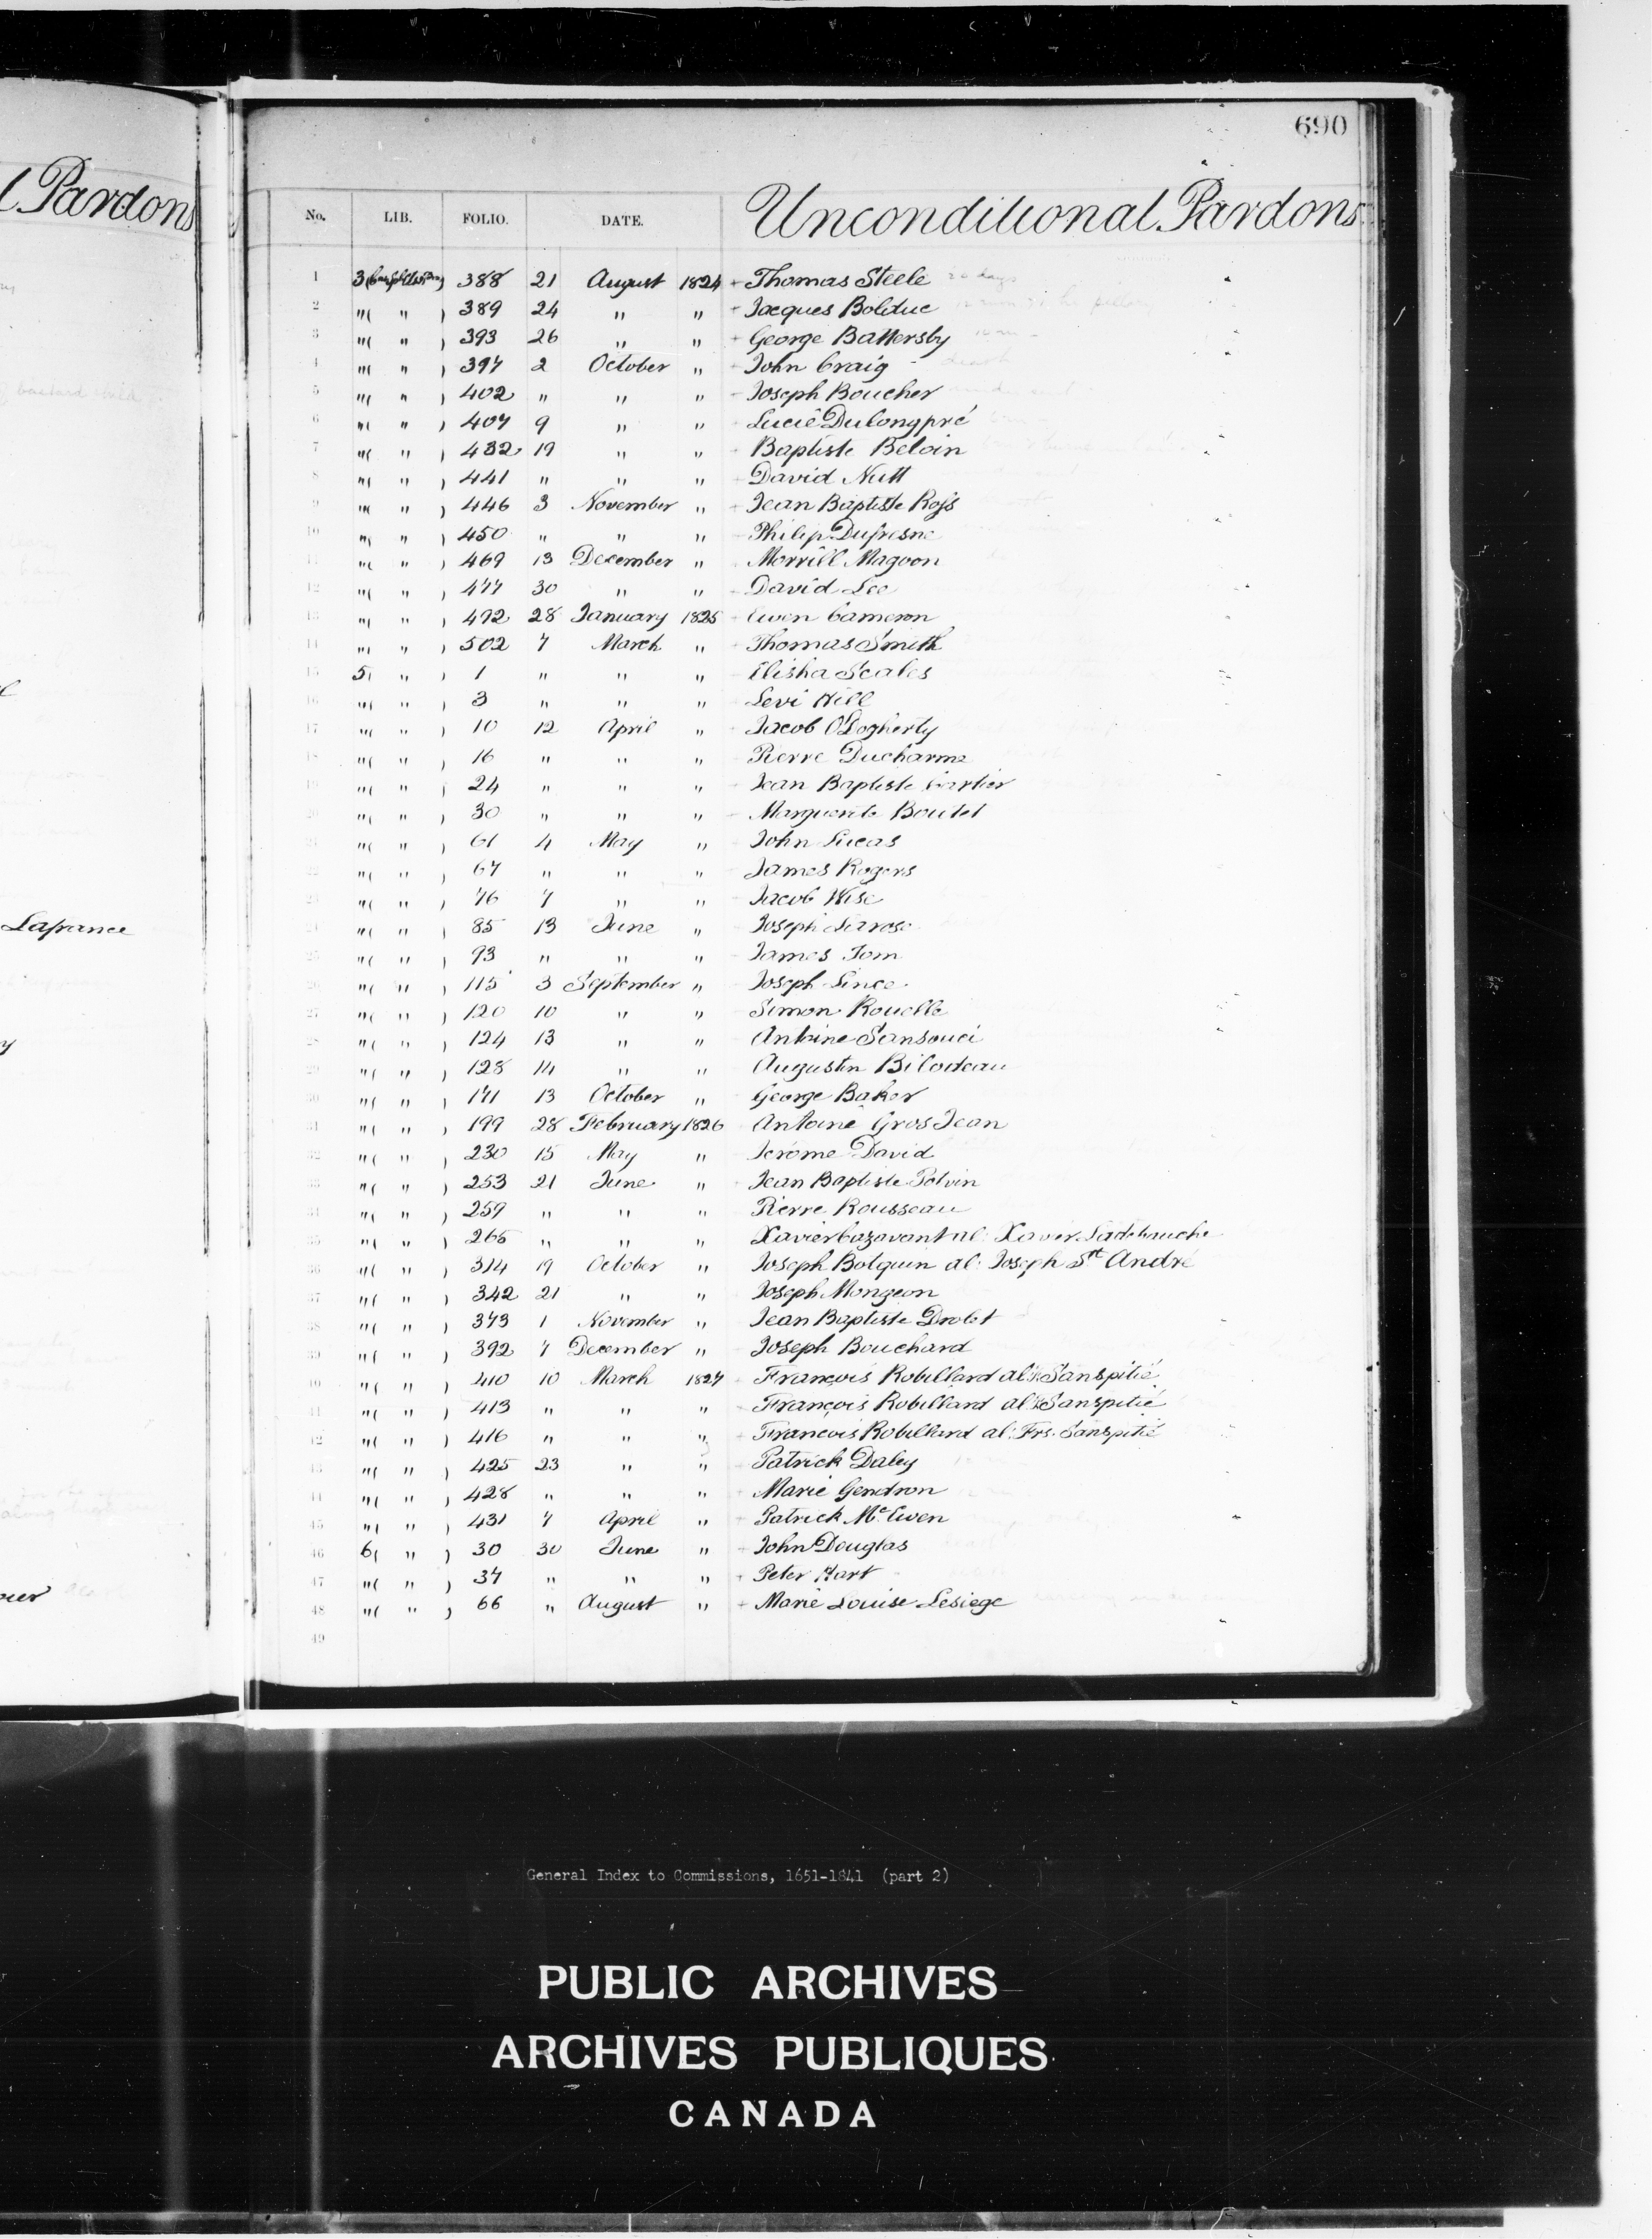 690
l Pardons
No. LIB. FOLIO. DATE. Unconditional Pardons
1 3 388 21 August 1824 + Thomas Steele 20 days
2 "( " ) 389 24 " " + Jacques Bolduc
3 "( " ) 393 26 " " + George Battersby
4 "( " ) 397 2 October " + John Craig - death
5 "( " ) 402 " " " - Joseph Boucher
6 "( " ) 407 9 " " - Lucie Dulongpré
7 "( " ) 432 19 " " - Baptiste Beloin
8 "( " ) 441 " " " - David Nutt
9 "( " ) 446 3 November " + Jean Baptiste Ross
10 "( " ) 450 " " " - Philip Dufresne
11 "( " ) 469 13 December " - Morrill Magoon
12 "( " ) 477 30 " " - David Lee
13 "( " ) 492 28 January 1825 - Ewen Cameron
14 "( " ) 502 7 March " - Thomas Smith
15 5( " ) 1 " " " - Elisha Scales
16 "( " ) 3 " " " - Levi Hill
17 "( " ) 10 12 April " - Jacob O'Dogherty
18 "( " ) 16 " " " - Pierre Ducharme
19 "( " ) 24 " " " - Jean Baptiste Cartier
20 "( " ) 30 " " " - Marguerite Boutet
21 "( " ) 61 4 May " - John Lucas
22 "( " ) 67 " " " - James Rogers
23 "( " ) 76 7 " " - Jacob Wise
Lafrance
24 "( " ) 85 13 June " - Joseph Larose
25 "( " ) 93 " " " - James Tom
26 "( " ) 115 3 September " - Joseph Since
27 "( " ) 120 10 " " Simon Rouelle
28 "( " ) 124 13 " " Antoine Sansouci
29 "( " ) 128 14 " " Augustin Bilodeau
30 "( " ) 171 13 October " George Baker
31 "( " ) 199 28 February 1826 Antoine Gros Jean
32 "( " ) 230 15 May " Jerôme David
33 "( " ) 253 21 June " Jean Baptiste Potvin
34 "( " ) 259 " " " Pierre Rousseau
35 "( " ) 265 " " " Xavier Cazavant al: Xavier Ladebauche
36 "( " ) 314 19 October " Joseph Bolquin al: Joseph St André
37 "( " ) 342 21 " " Joseph Mongeon
38 "( " ) 373 1 November " Jean Baptiste Drolet
39 "( " ) 392 7 December " - Joseph Bouchard
40 "( " ) 410 10 March 1827 - François Robillard al: Sanspitié
41 "( " ) 413 " " " - François Robillard al: Sanspitié
42 "( " ) 416 " " " - Francois Robillard al: Frs. Sanspitié
43 "( " ) 425 23 " " - Patrick Daley
44 "( " ) 428 " " " - Marie Gendron
45 "( " ) 431 7 April " + Patrick Mc Ewen
46 6( " ) 30 30 June " + John Douglas
47 "( " ) 34 " " " + Peter Hart
48 "( " ) 66 " August " + Marie Louise Lesiege
49
General Index to Commissions, 1651-1841 (part 2)
PUBLIC ARCHIVES
ARCHIVES PUBLIQUES
CANADA